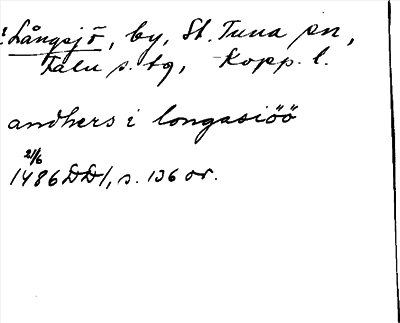 ! Långsjö, by, St. Tuna sn,
Falu s. tg, Kopp. l.
andhers i longasiöö
21/6
1486 DD1, s. 136 or.